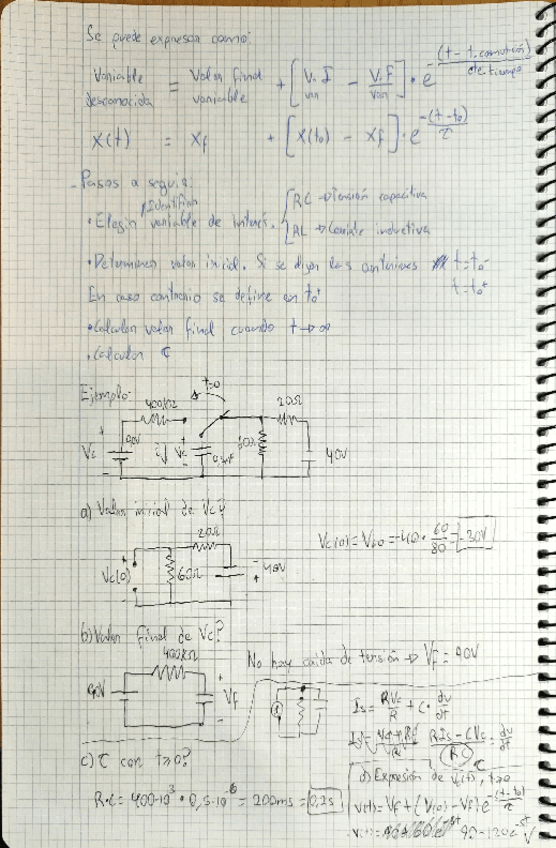 Se puede expresar como:
Variable desconocida = Valor final variable + [V.I var - V.F var] · e^-(t - t. conmutación)/cte. tiempo
x(t) = xf + [x(to) - xf] · e^-(t-to)/τ
Pasos a seguir:
Identificar
• Elegir variable de interés. { RC → Tensión capacitiva
RL → Corriente inductiva
• Determinar valor inicial. Si se eligen las anteriores t = to-
En caso contrario se define en to+ t = to+
• Calcular valor final cuando t → ∞
• Calcular τ
Ejemplo:
400kΩ t=0 20Ω
+ Vc 90V i↓ Vc + 0,5μF 60Ω 40V
a) Valor inicial de Vc?
20Ω
Vc(0) 60Ω 40V - +
Vc(0) = Vco = -40 · 60/80 = -30V
b) Valor final de Vc?
400kΩ
90V + VF -
No hay caída de tensión → VF = 90V
Is = RVc/R + C · dv/dt
RIs - CVc / RC = dv/dt
τ
c) τ con t≥0?
R·C = 400·10^3 · 0,5·10^-6 = 200ms = 0,2s
d) Expresión de vc(t), t≥0
v(t) = Vf + (V(0) - Vf) e^-(t-to)/τ
v(t) = 90 - 120e^-5t V